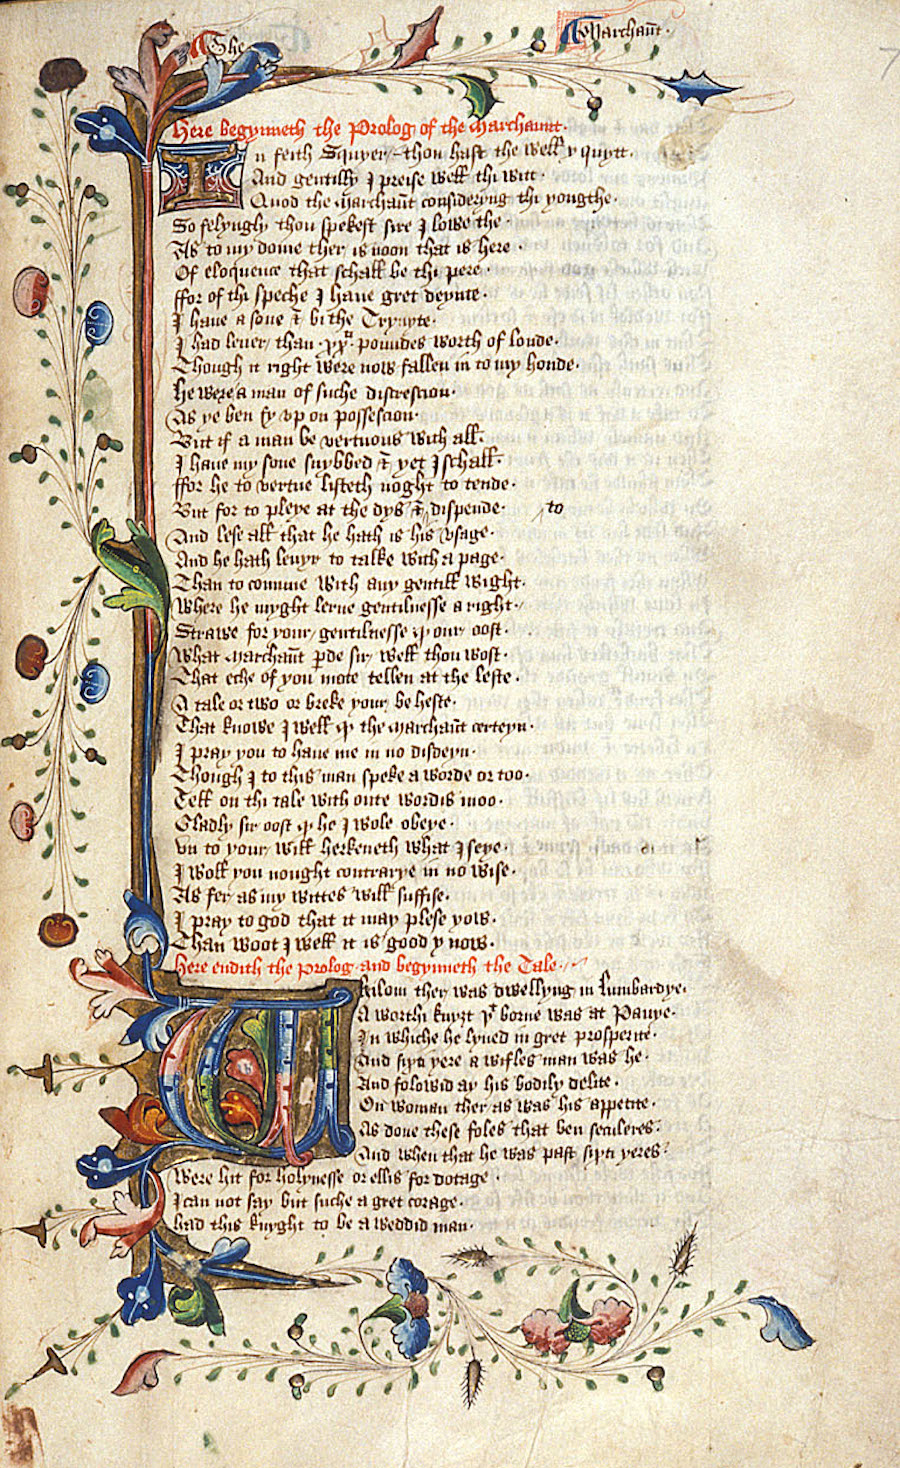 The Marchant.
Here begynneth the Prolog of the Marchaunt.
In feith Squyer thou hast the well y quytt.
And gentilly I preise well thi witt.
Quod the Marchaūt consideryng thi yongthe.
So felyngly thou spekest sire I lowe the.
As to my dome ther is noon that is here
Of eloquence that schall be thi pere.
ffor of thi speche I haue gret deynte.
I haue a sone & bi the Trynyte.
I had leuer than xxti poundes worth of londe.
Though it right were now fallen in to my honde.
He were a man of suche discrescion.
As ye ben fy vp on possescion.
But if a man be vertuous with all.
I haue my sone snybbed & yet I schall.
ffor he to vertue listeth noght to tende.
But for to pleye at the dys & dispende. to
And lese all that he hath is his vsage.
And he hath leuyr to talke with a page.
Than to comune with any gentill wight.
Where he myght lerne gentilnesse a right.
Strawe for your gentilnesse qd our oost.
What Marchaūt pde sir well thou wost.
That eche of you mote tellen at the leste.
A tale or two or breke your be heste.
That knowe I well qd the Marchaūt certeyn.
I pray you to haue me in no disdeyn.
Though I to this man speke a worde or too.
Tell on thi tale with oute wordis moo.
Gladly sir oost qd he I wole obeye.
vn to your will herkeneth what I seye.
I woll you nought contrarye in no wise.
As fer as my wittes will suffise.
I pray to god that it may plese yow.
Than woot I well it is good y now.
Here endith the Prolog and begynneth the Tale.
Whilom ther was dwellyng in Lumbardye.
A worthi knyzt yt borne was at Pauye.
In whiche he lyued in gret prosperite.
And sixti yere a wifles man was he.
And folowid ay his bodily delite.
On woman ther as was his appetite.
As done these foles that ben seculeres.
And when that he was past sixti yeres.
Were hit for holynesse or ellis for dotage.
I can not say but suche a gret corage.
had this knyght to be a weddid man.